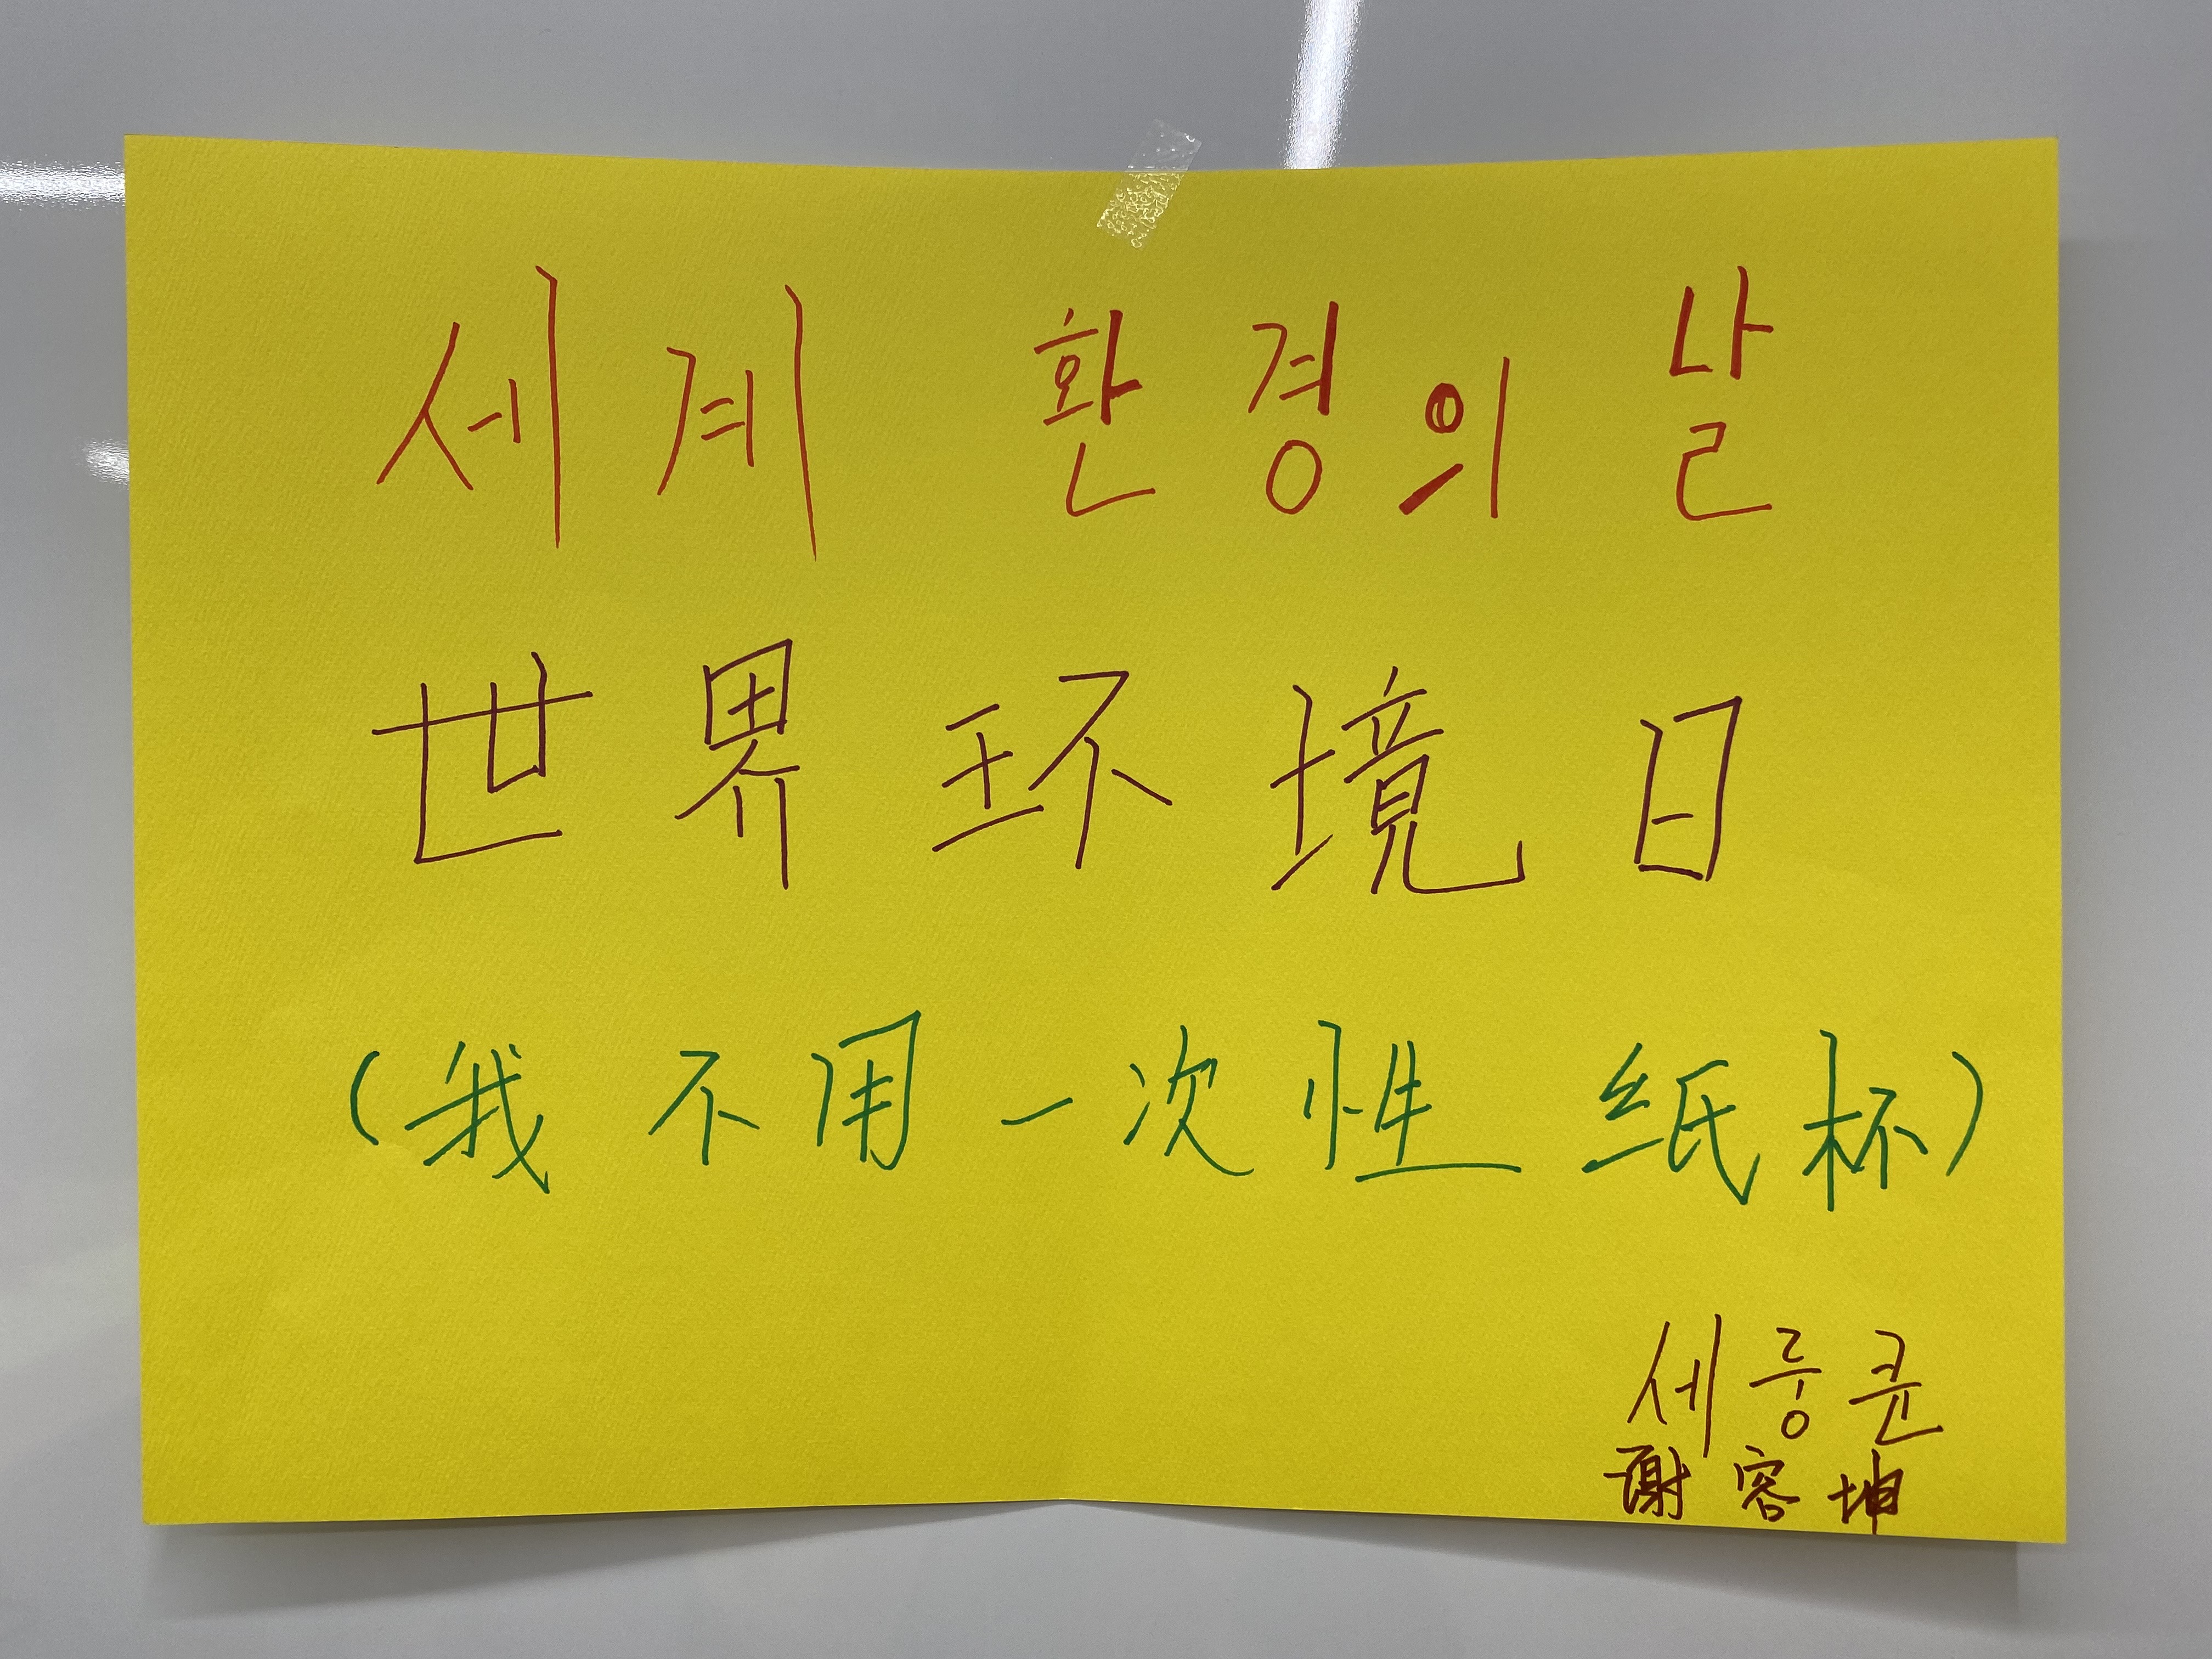 세계 환경의 날
世界环境日
(我不用一次性纸杯)
세릉큰
谢容坤